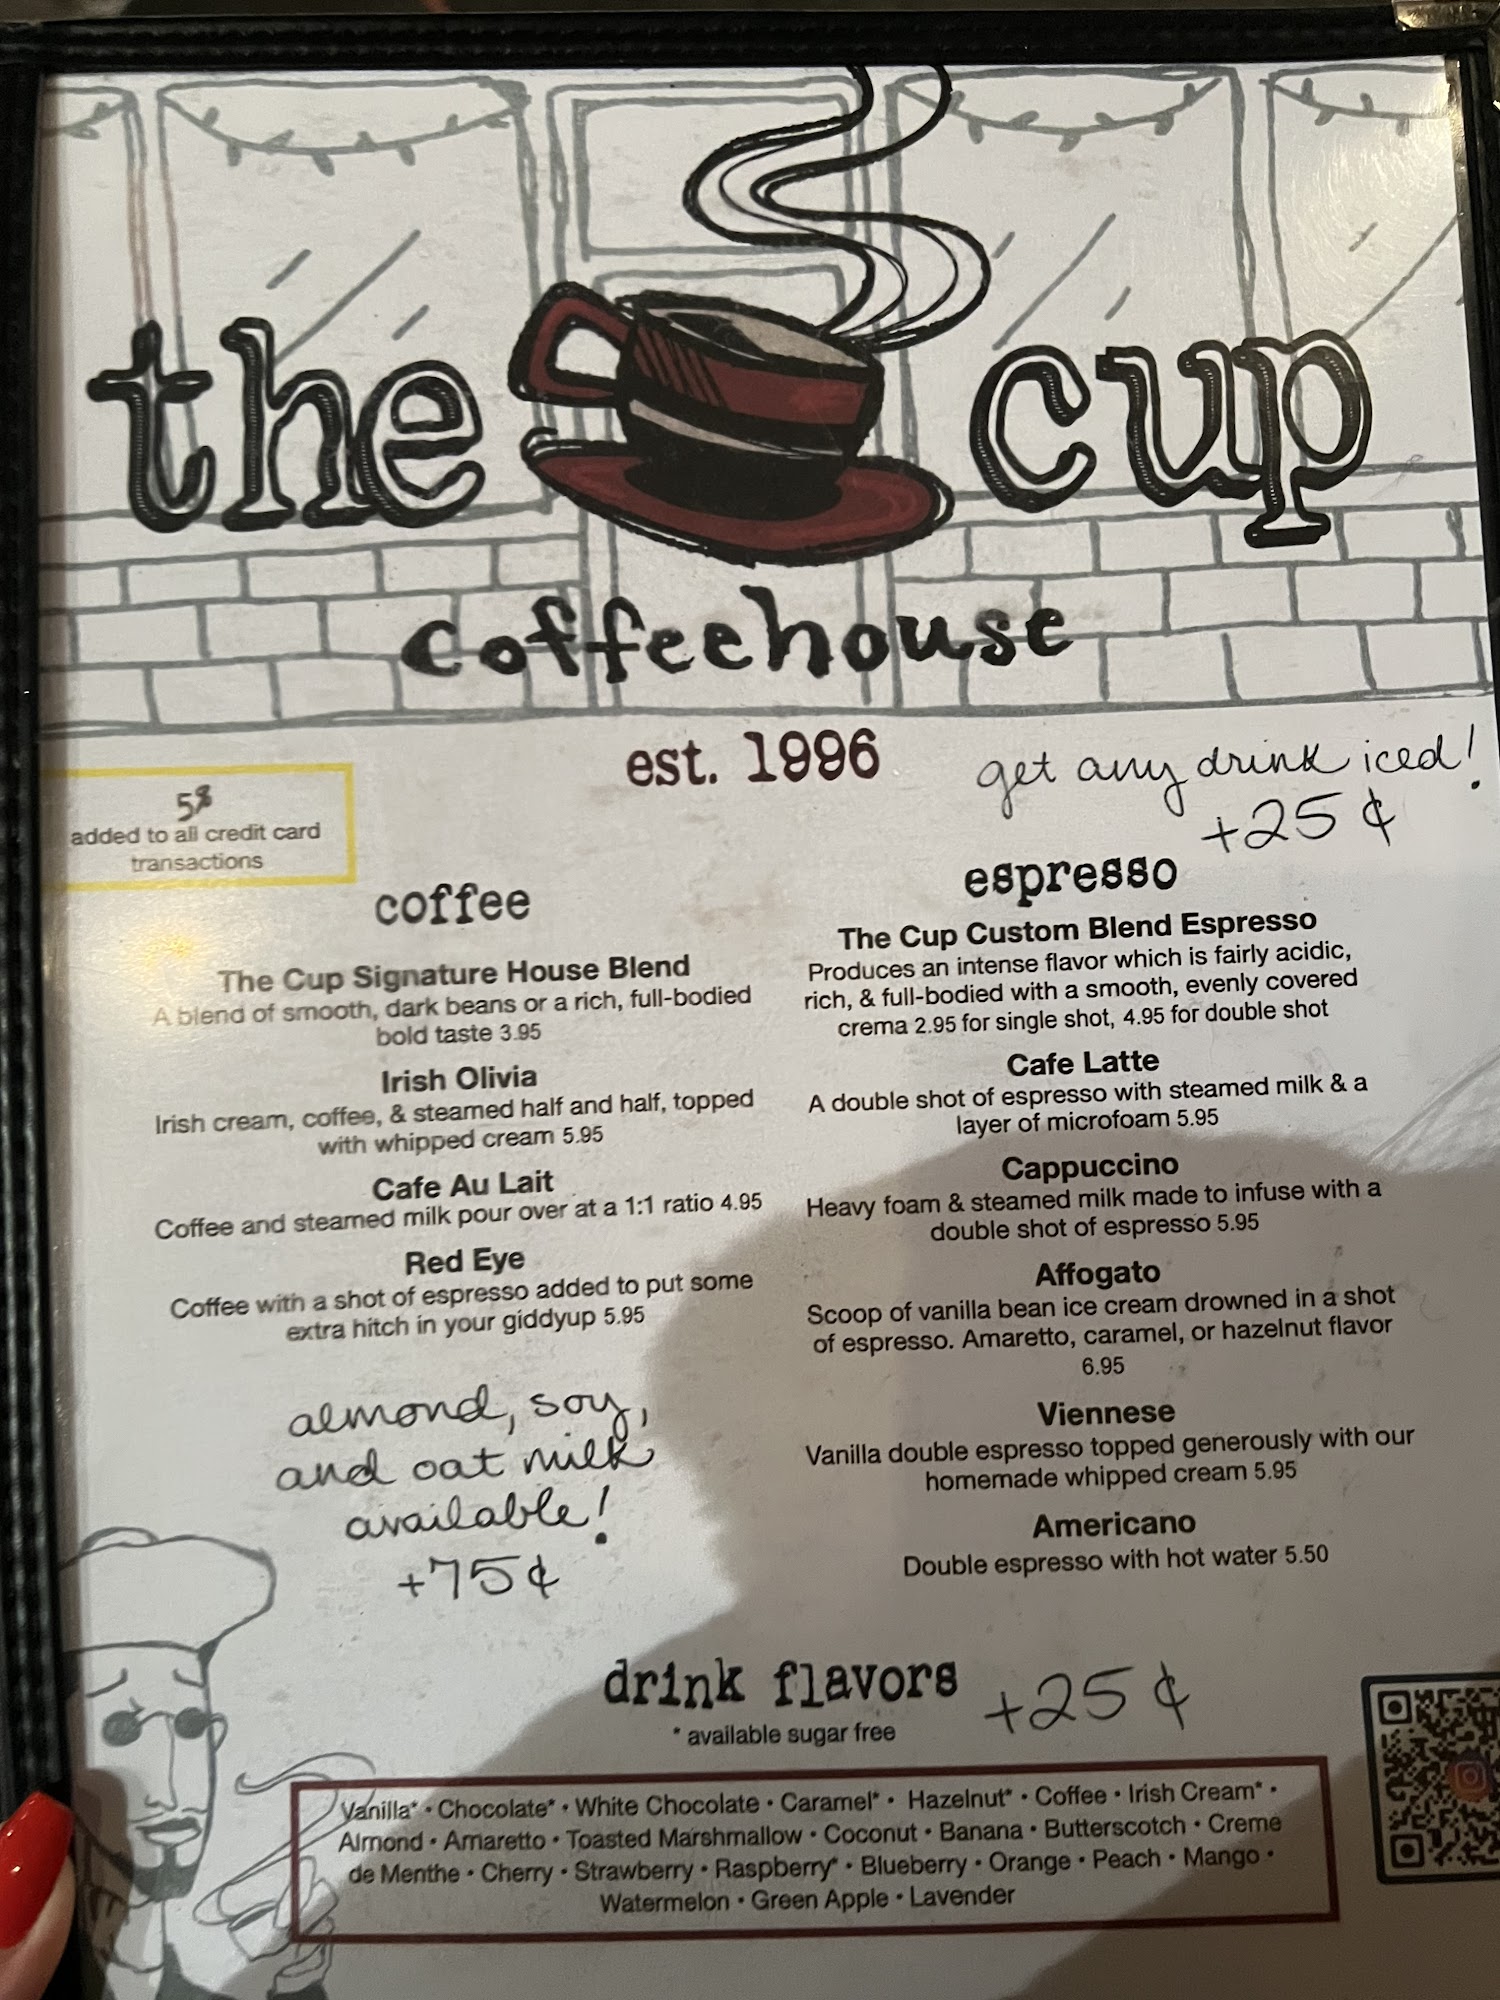 the cup
coffeehouse
est. 1996
get any drink iced!
+25¢
5%
added to all credit card
transactions
coffee
The Cup Signature House Blend
A blend of smooth, dark beans or a rich, full-bodied
bold taste 3.95
Irish Olivia
Irish cream, coffee, & steamed half and half, topped
with whipped cream 5.95
Cafe Au Lait
Coffee and steamed milk pour over at a 1:1 ratio 4.95
Red Eye
Coffee with a shot of espresso added to put some
extra hitch in your giddyup 5.95
almond, soy,
and oat milk
available!
+75¢
espresso
The Cup Custom Blend Espresso
Produces an intense flavor which is fairly acidic,
rich, & full-bodied with a smooth, evenly covered
crema 2.95 for single shot, 4.95 for double shot
Cafe Latte
A double shot of espresso with steamed milk & a
layer of microfoam 5.95
Cappuccino
Heavy foam & steamed milk made to infuse with a
double shot of espresso 5.95
Affogato
Scoop of vanilla bean ice cream drowned in a shot
of espresso. Amaretto, caramel, or hazelnut flavor
6.95
Viennese
Vanilla double espresso topped generously with our
homemade whipped cream 5.95
Americano
Double espresso with hot water 5.50
drink flavors +25¢
* available sugar free
Vanilla* • Chocolate* • White Chocolate • Caramel* • Hazelnut* • Coffee • Irish Cream* •
Almond • Amaretto • Toasted Marshmallow • Coconut • Banana • Butterscotch • Creme
de Menthe • Cherry • Strawberry • Raspberry* • Blueberry • Orange • Peach • Mango •
Watermelon • Green Apple • Lavender